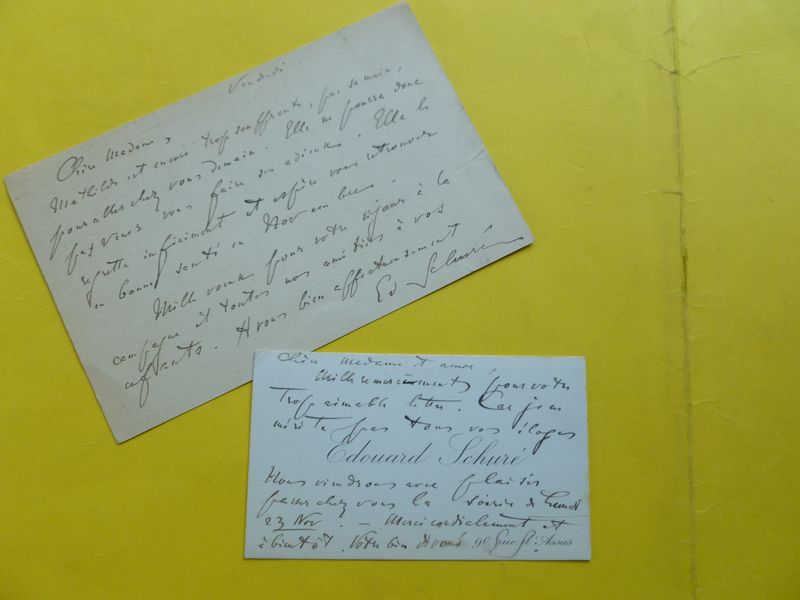 Vendredi
Chère Madame,
Mathilde est encore trop souffrante, pas demain,
pour aller chez vous demain. Elle ne pourra donc
pas venir vous faire ses adieux. Elle le
regrette infiniment et espère vous retrouver
en bonne santé en Novembre.
Mille vœux pour votre séjour à la
campagne et toutes nos amitiés à vos
enfants. A vous bien affectueusement
Ed Schuré
Chère Madame et amie
Mille remerciements pour votre
trop aimable lettre. Car je ne
mérite pas tous vos éloges
Edouard Schuré
Nous viendrons avec plaisir
passer chez vous la soirée de Lundi
23 Nov. — Merci cordialement et
à bientôt. Votre bien dévoué
90, Rue d'Assas